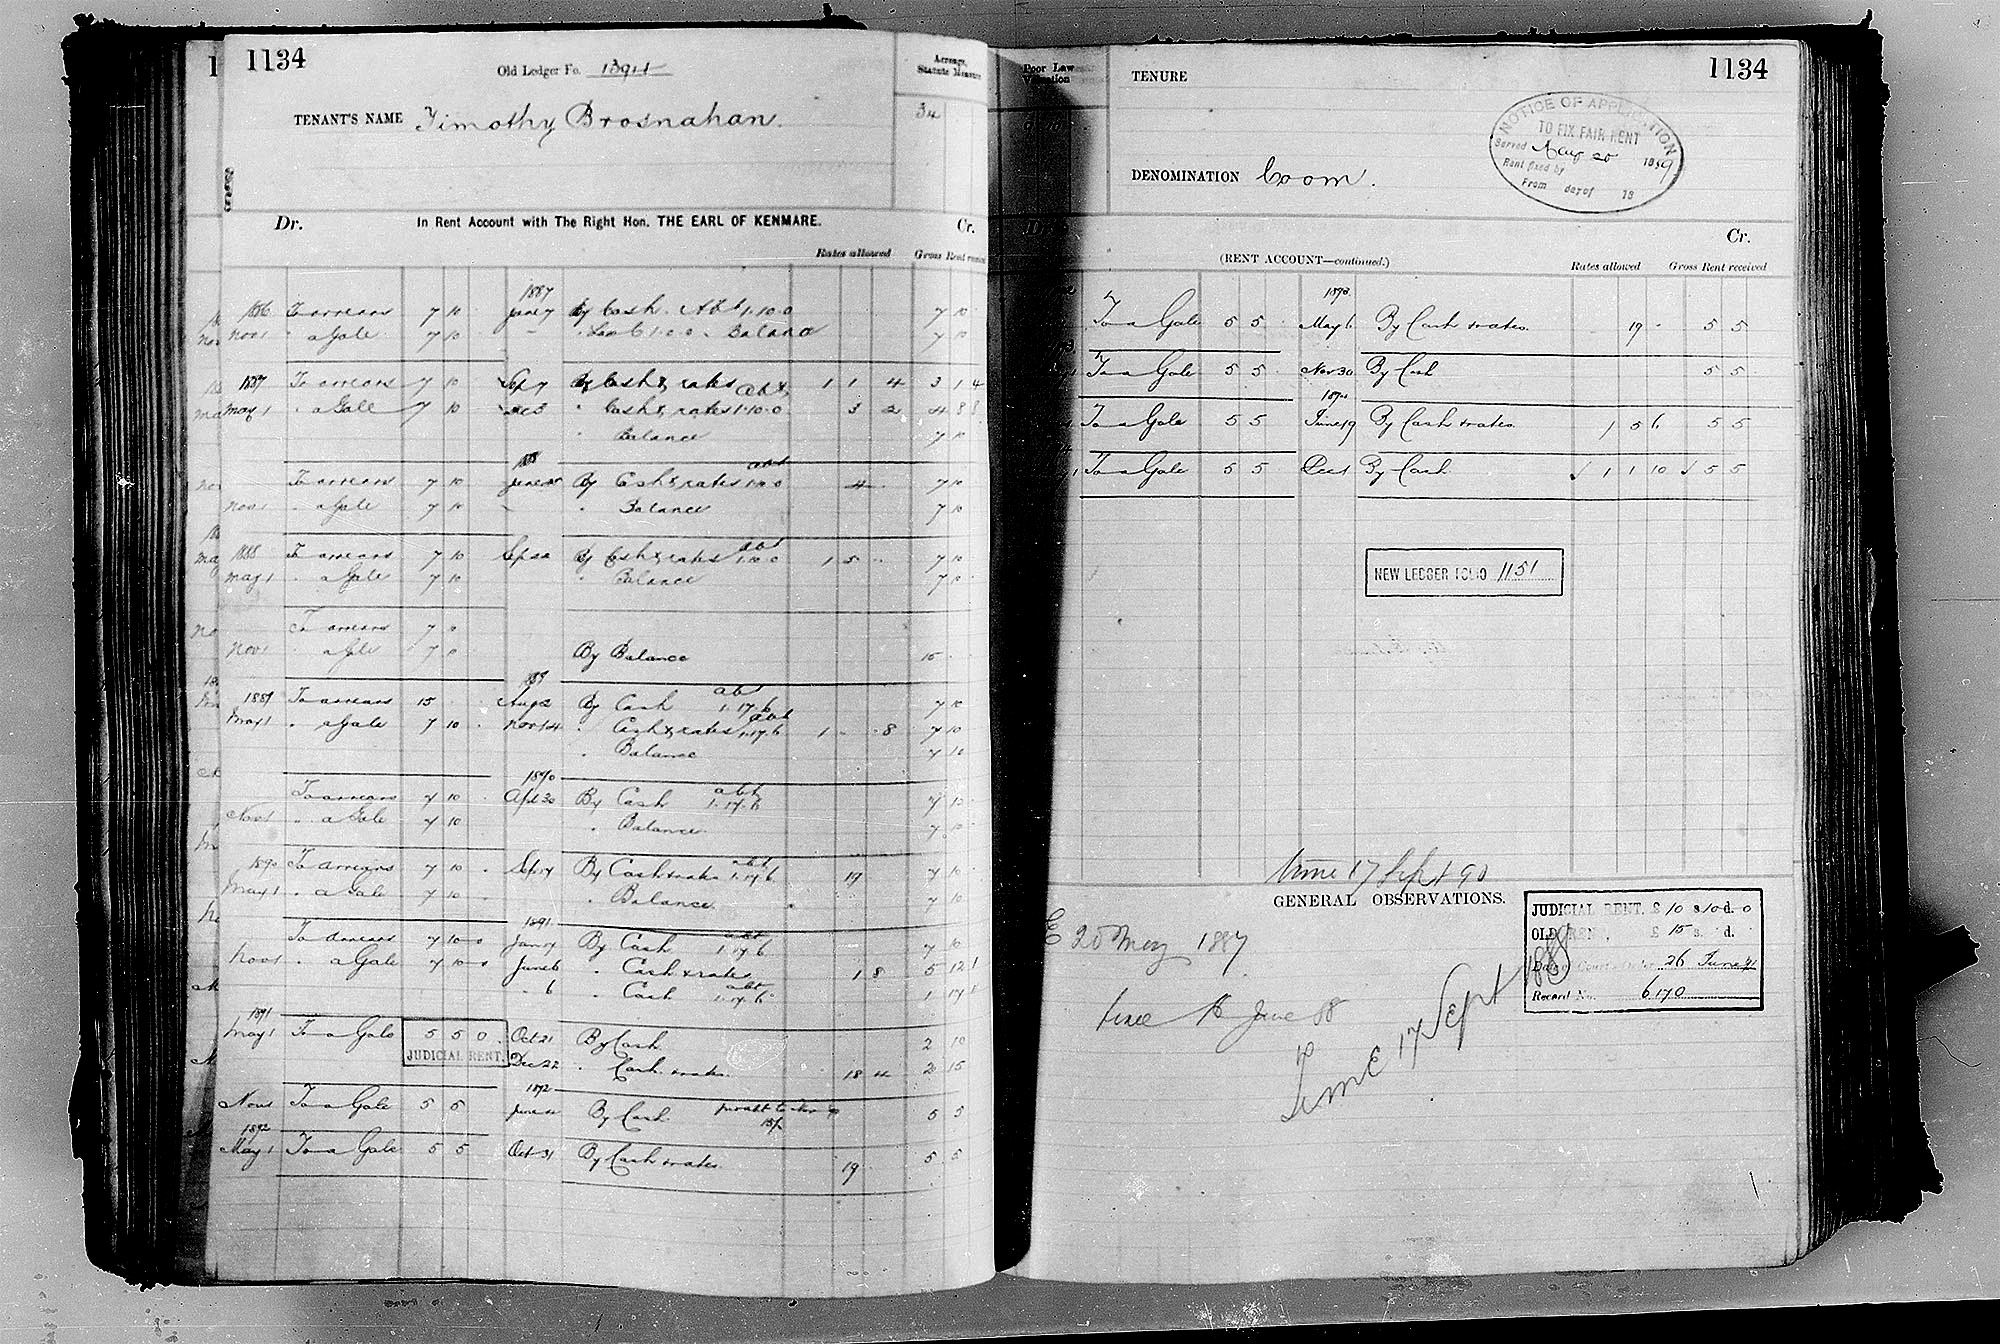 1134
Old Ledger Fo.
Acreage, Statute Measure
TENANT'S NAME Timothy Brosnahan.
34
Dr. In Rent Account with The Right Hon. THE EARL OF KENMARE. Cr.
Rates allowed Gross Rent received
1887
1886 To arrears 7 10 June 7 By Cash Abt 1.10.0 7 10
Nov 1 " a Gale 7 10 Balance 7 10
1887 To arrears 7 10 Sep 7 By Cash & rates 1 1 4 3 1 4
May 1 " a Gale 7 10 Dec 3 " Cash & rates 1.10.0 3 2 4 8 8
" Balance 7 10
To arrears 7 10 By Cash & rates abt 4 7 10
Nov 1 " a Gale 7 10 " Balance 7 10
1888 To arrears 7 10 Sep 22 By Cash & rates abt 1.10.0 1 5 7 10
May 1 " a Gale 7 10 " Balance 7 10
To arrears 7
Nov 1 a Gale 7 By Balance 15
1889 To arrears 15 Aug 2 By Cash abt 1.17.6 7 10
May 1 " a Gale 7 10 Nov 14 " Cash & rates abt 1.17.6 1 - 8 7 10
" Balance 7 10
1890
To arrears 7 10 Apl 30 By Cash abt 1.17.6 7 10
Nov 1 " a Gale 7 10 " Balance 7 10
1890 To arrears 7 10 Sep 17 By Cash & rates abt 1.17.6 19 7 10
May 1 " a Gale 7 10 " Balance 7 10
1891
To arrears 7 10 0 Jan 7 By Cash abt 1.17.6 7 10
Nov 1 " a Gale 7 10 June 6 " Cash & rates 1 8 5 12
" 6 " Cash abt 1.17.6 1 17
1891
May 1 To a Gale 5 5 0 Oct 21 By Cash 2 10
JUDICIAL RENT. Dec 22 " Cash & rates 18 4 2 15
1892
Nov 1 To a Gale 5 5 June By Cash 5 5
1892
May 1 To a Gale 5 5 Oct 31 By Cash & rates 19 5 5
Poor Law Valuation
TENURE
1134
NOTICE OF APPLICATION
TO FIX FAIR RENT
Served Aug 20 1889
Rent fixed by
From day of 18
DENOMINATION Coom.
Cr.
(RENT ACCOUNT—continued.) Rates allowed Gross Rent received
1893
To a Gale 5 5 May 6 By Cash & rates 19 - 5 5
To a Gale 5 5 Nov 30 By Cash 5 5
To a Gale 5 5 June 19 By Cash & rates 1 5 6 5 5
To a Gale 5 5 Dec 1 By Cash 1 1 10 5 5
NEW LEDGER FOLIO 1151
time 17 Sept 90
GENERAL OBSERVATIONS.
JUDICIAL RENT, £ 10 s. 10 d. 0
OLD RENT, £ 15 s. d.
Date of Court Order 26 June 91
Record No. 6170
E 20 May 1887
June 88
Time 17 Sept 88